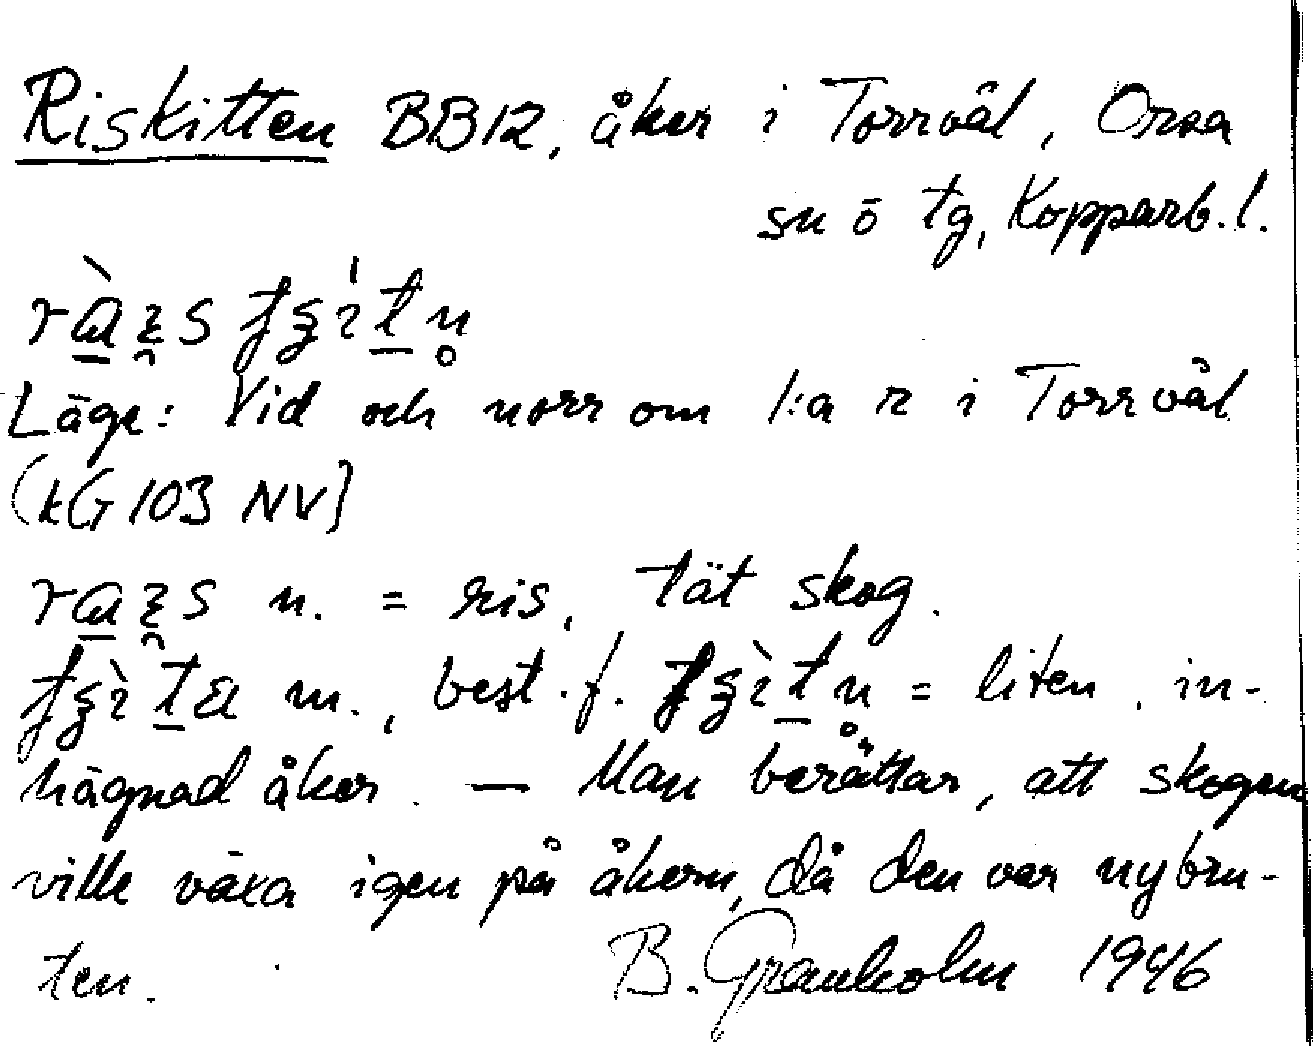 Riskitten BB12, åker i Torrvål, Orsa
sn ö tg, Kopparb. l.
Läge: Vid och norr om l:a r i Torrvål
(kG 103 NV)
n. = ris, tät skog.
m., best. f. = liten, in-
hägnad åker. — Man berättar, att skogen
ville växa igen på åkern, då den var nybru-
ten. B. Granholm 1946